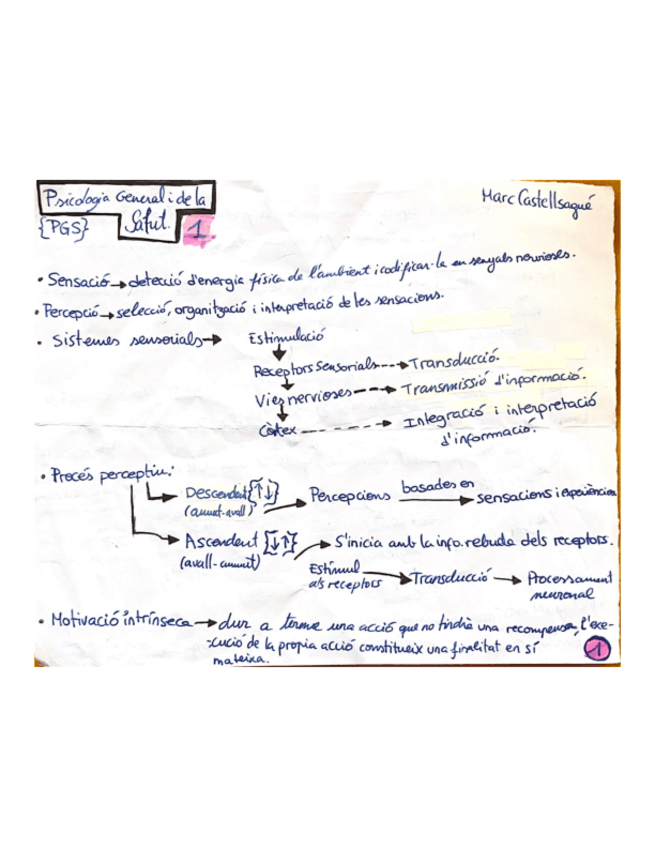 Psicologia General i de la
Salut.
{PGS}
1
Marc Castellsagué
• Sensació → detecció d'energia física de l'ambient i codificar-la en senyals nervioses.
• Percepció → selecció, organització i interpretació de les sensacions.
• Sistemes sensorials → Estimulació
Receptors Sensorials → Transducció.
Vies nervioses → Transmissió d'informació.
Còrtex → Integració i interpretació
d'informació.
• Procés perceptiu:
Descendent {↑↓} → Percepcions basades en → sensacions i experiències
(amunt-avall)
Ascendent {↓↑} → S'inicia amb la info. rebuda dels receptors.
(avall-amunt)
Estímul
als receptors → Transducció → Processament
neuronal
• Motivació intrínseca → dur a terme una acció que no tindria una recompensa, l'exe-
cució de la propia acció constitueix una finalitat en sí
mateixa.
1